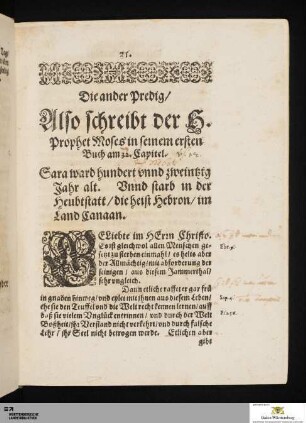 Die ander Predig/
Also schreibt der H.
Prophet Moses in seinem ersten
Buch am 23. Capitel.
Sara ward hundert vnnd zweintzig
Jahr alt. Vnnd starb in der
Heubtstatt / die heist Hebron / im
Land Canaan.
GEliebte im HErrn Christo.
Es ist gleichwol allen Menschen ge-
setzt zu sterben einmahl / es helts aber
der Allmächtig / mit abforderung der
seinigen / auß diesem Jammerthal /
sehr vngleich.
Dann etliche raffet er gar früh
in gnaden hinweg / vnd eylet mit ihnen auß diesem Leben /
ehe sie den Teuffel vnd die Welt recht kennen lernen / auff
daß sie vielem Vnglück entrinnen / vnd durch der Welt
Boßheit / jhr Verstand nicht verkehrt / vnd durch falsche
Lehr / jhr Seel nicht betrogen werde. Etlichen aber
gibt